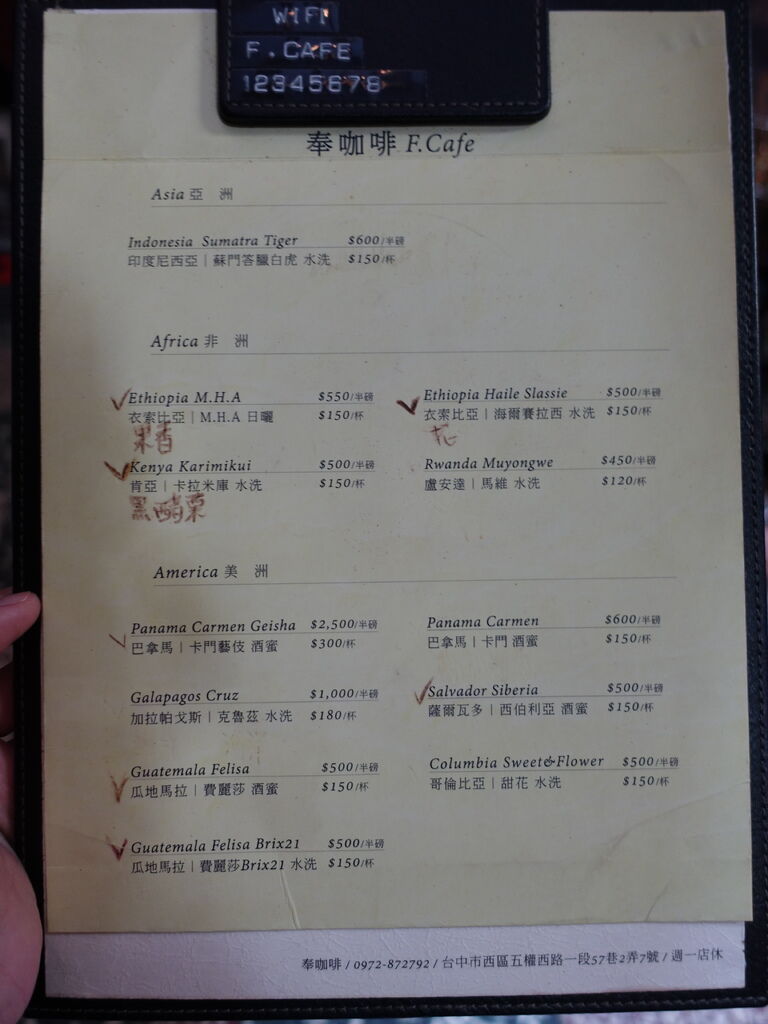 WIFI
F.CAFE
12345678
奉咖啡 F.Cafe
Asia 亞 洲
Indonesia Sumatra Tiger $600/半磅
印度尼西亞 | 蘇門答臘白虎 水洗 $150/杯
Africa 非 洲
Ethiopia M.H.A $550/半磅
衣索比亞 | M.H.A 日曬 $150/杯
果香
Ethiopia Haile Slassie $500/半磅
衣索比亞 | 海爾賽拉西 水洗 $150/杯
花
Kenya Karimikui $500/半磅
肯亞 | 卡拉米庫 水洗 $150/杯
黑醋栗
Rwanda Muyongwe $450/半磅
盧安達 | 馬維 水洗 $120/杯
America 美 洲
Panama Carmen Geisha $2,500/半磅
巴拿馬 | 卡門藝伎 酒蜜 $300/杯
Panama Carmen $600/半磅
巴拿馬 | 卡門 酒蜜 $150/杯
Galapagos Cruz $1,000/半磅
加拉帕戈斯 | 克魯茲 水洗 $180/杯
Salvador Siberia $500/半磅
薩爾瓦多 | 西伯利亞 酒蜜 $150/杯
Guatemala Felisa $500/半磅
瓜地馬拉 | 費麗莎 酒蜜 $150/杯
Columbia Sweet&Flower $500/半磅
哥倫比亞 | 甜花 水洗 $150/杯
Guatemala Felisa Brix21 $500/半磅
瓜地馬拉 | 費麗莎Brix21 水洗 $150/杯
奉咖啡 / 0972-872792 / 台中市西區五權西路一段57巷2弄7號 / 週一店休